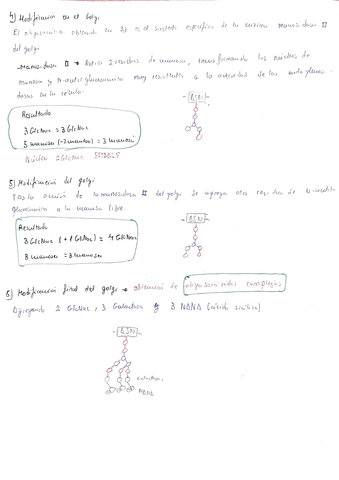 4) Modificación en el Golgi
El oligosacárido obtenido en 3) es el sustrato específico de la enzima manosidasa II
del golgi
-Manosidasa II → Retira 2 residuos de manosa, transformando los núcleos de
manosa y N-acetil glucosamina muy resistentes a la actividad de las endoglucosi
dasas en la célula.
Resultado
3 GlcNac = 3 GlcNac
5 manosas (-2 manosas) = 3 manosas
Núcleo 2 GlcNac ESTABLE
ASN
5) Modificación del golgi
Tras la acción de la manosidasa II del golgi se agrega otro residuo de N-acetil
glucosamina a la manosa libre.
Resultado
3 GlcNac (+1 GlcNac) = 4 GlcNac
3 manosas = 3 manosas
ASN
6) Modificación final del golgi → obtención de oligosacáridos complejos
Agregando 2 GlcNac, 3 Galactosa y 3 NANA (ácido siálico)
ASN
Galactosa
NANA